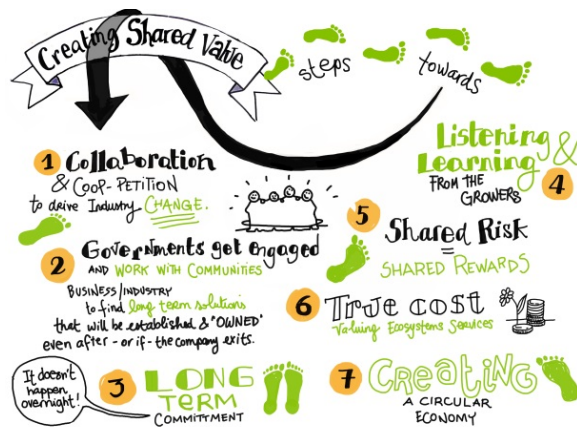 Creating Shared Value
steps
towards
1 Collaboration
& COOP-PETITION
to drive Industry CHANGE.
2 Governments get engaged
AND WORK WITH COMMUNITIES
BUSINESS/INDUSTRY
to find long term solutions
that will be established & "OWNED"
even after - or if - the company exits.
It doesn't
happen
overnight!
3 LONG
TERM
COMMITTMENT
Listening &
Learning
FROM THE
GROWERS
4
5 Shared Risk
=
SHARED REWARDS
6 True cost
Valuing Ecosystems Services
7 Creating
A CIRCULAR
ECONOMY